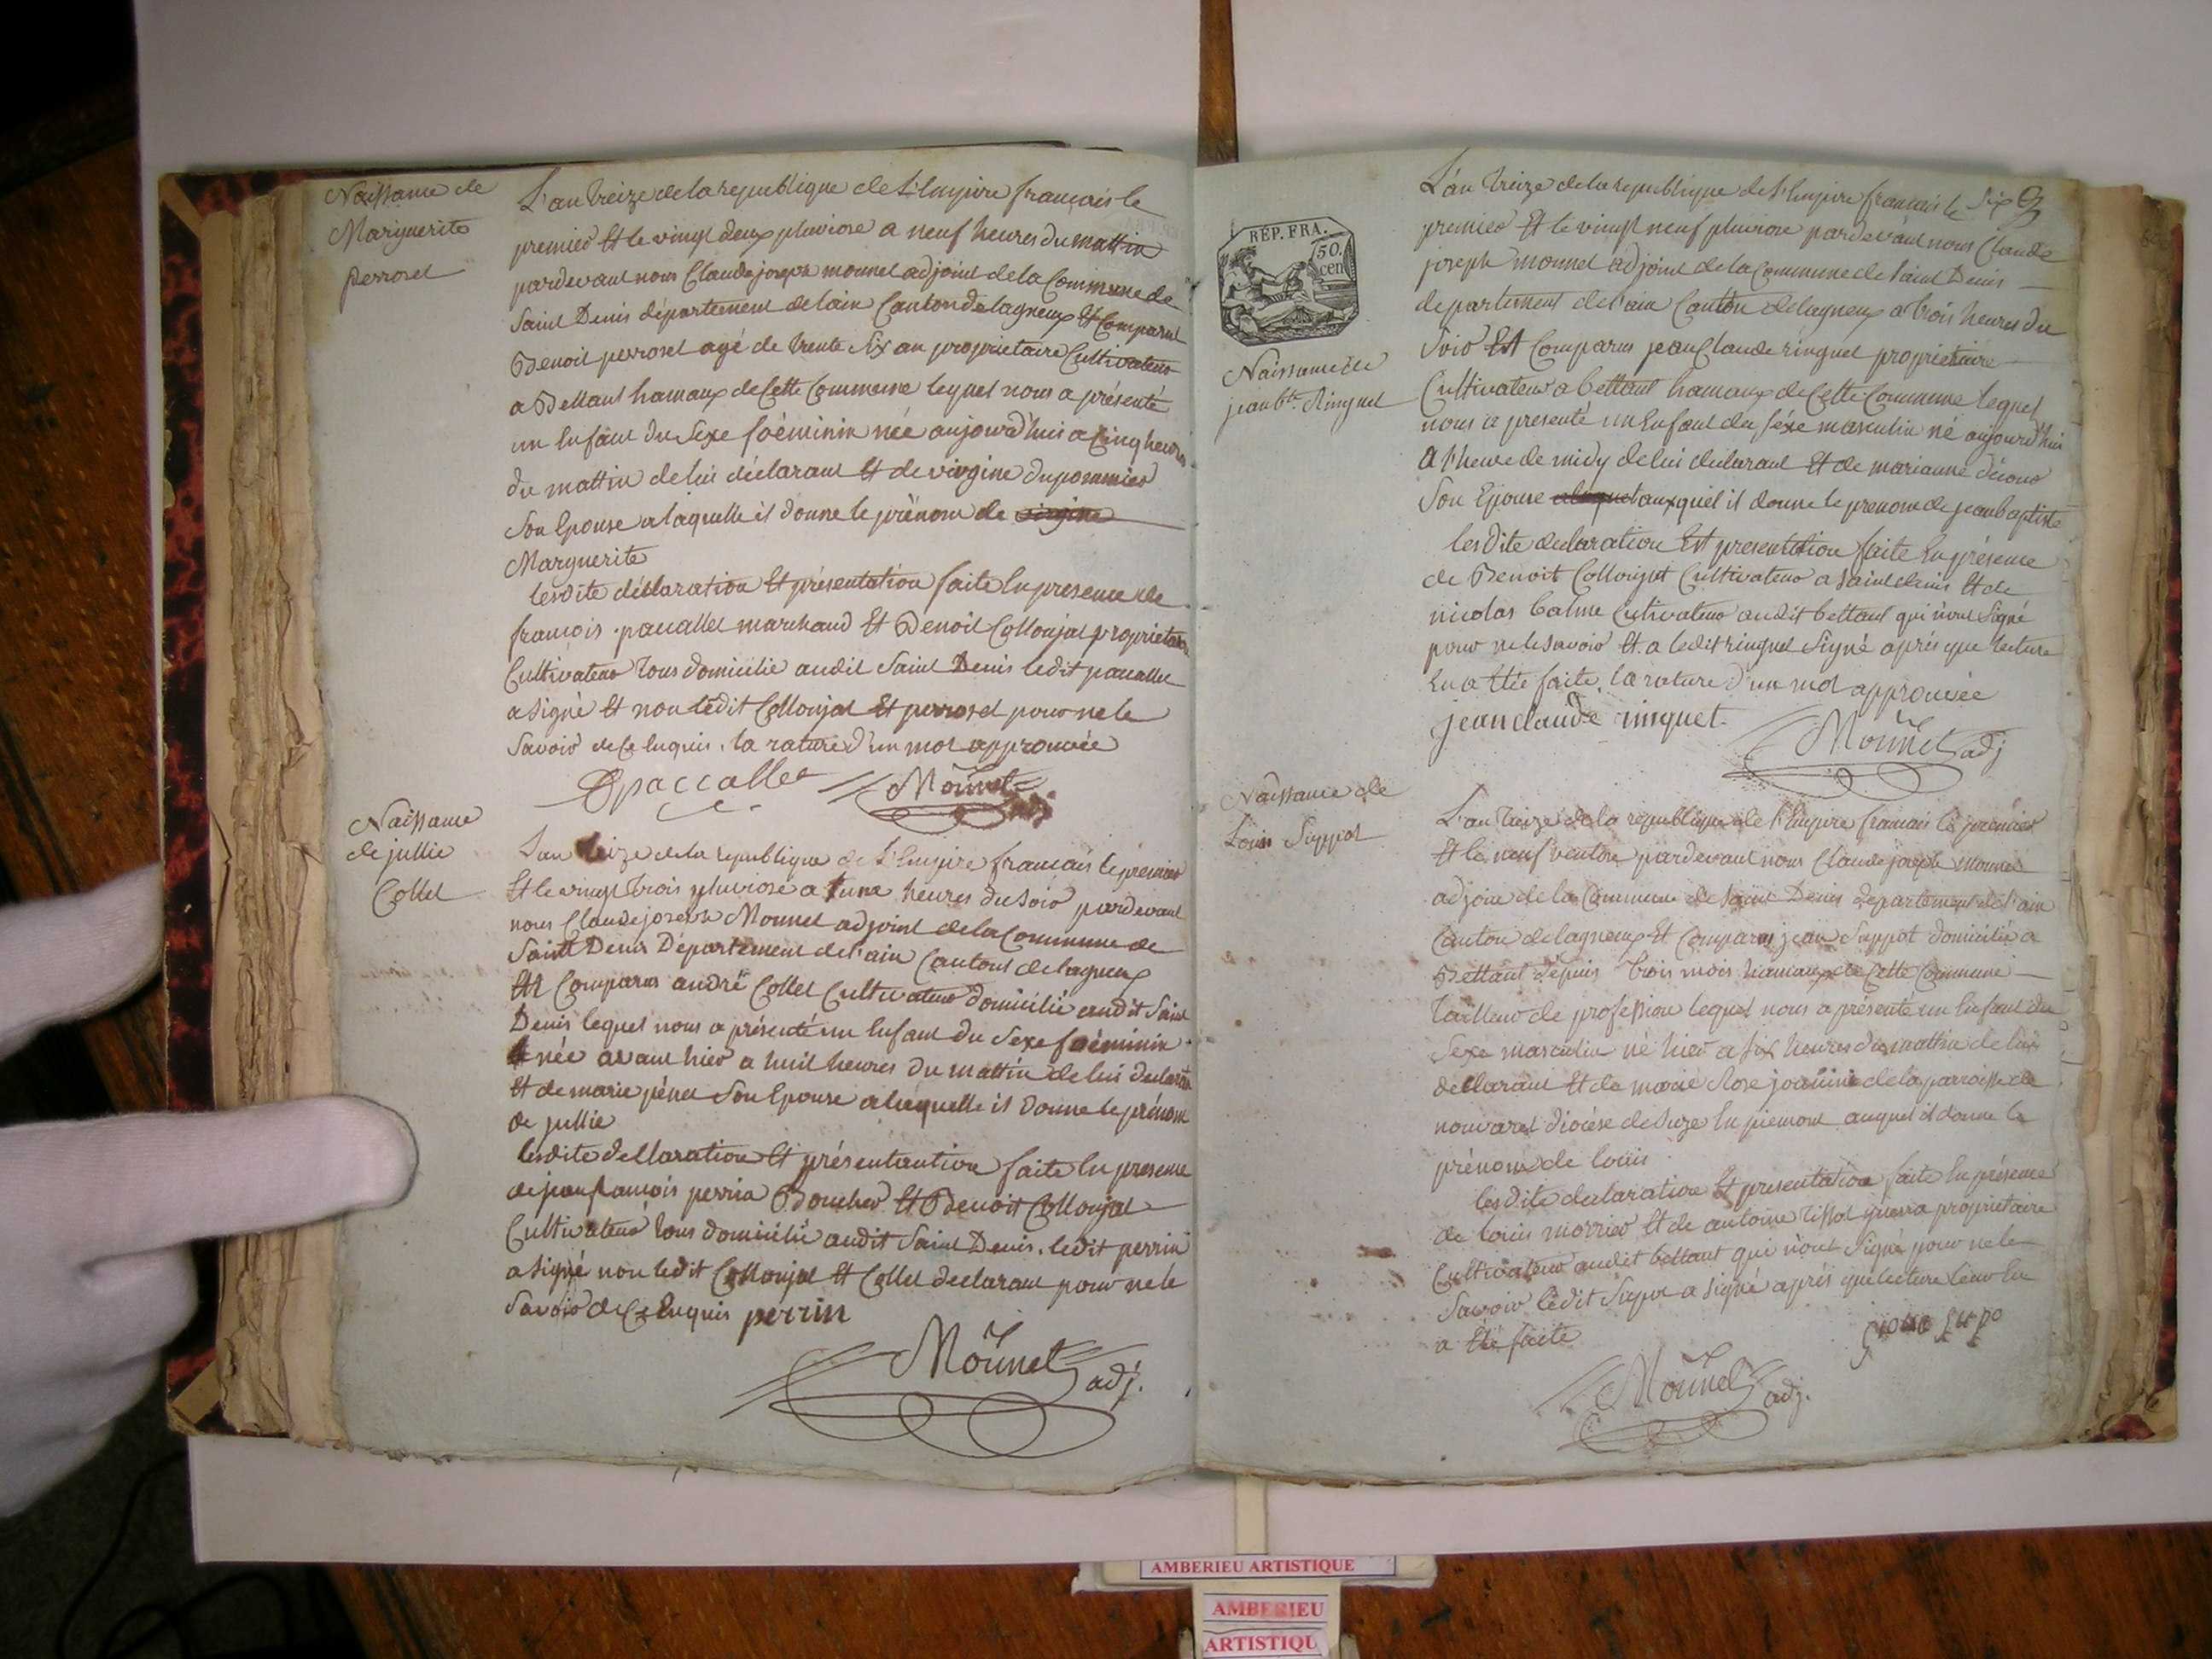 Naissance de
Marguerite
perroset
L'an treize de la republique de L'Empire français le
premier Et le vingt deux pluviose a neuf heures du mattin
pardevant nous Claude joseph mounet adjoint de la Commune de
Saint Denis département de lain Canton de lagneux Est Comparut
Benoit perroset agé de trente Six an propriétaire Cultivateur
a Bettant hamaux de Cette Commune lequel nous a présenté
un Enfant du Sexe foéminin née aujourd'hui a Cinq heures
du mattin de lui déclarant Et de virgine dupommier
Son Epouse a laquelle il donne le prénom de virgine
Marguerite
lesdite déclaration Et présentation faite En presence de
françois paccallet marchand Et Benoit Collonjat propriétaire
Cultivateur tous domicilié audit Saint Denis ledit paccallet
a Signé Et non ledit Collonjat Et perroset pour ne le
Savoir de Ce Enquis. la rature d'un mot approuvée
paccallet Mounet
Naissance
de jullie
Collet
L'an treize de la republique de L'Empire français le premier
Et le vingt trois pluviose a l'une heures du Soir pardevant
nous Claude joseph Mounet adjoint de la Commune de
Saint Denis Département de l'ain Cantont de lagneux
Est Comparus andré Collet Cultivateur domicilié audit Saint
Denis lequel nous a présenté un Enfant du Sexe foéminin
née avant hier a huit heures du mattin de lui declarant
Et de marie Son Epouse a laquelle il Donne le prénom
de jullie
lesdite dellaration Et présentantion faite En presence
de jean françois perrin Boucher Et Benoit Collonjat
Cultivateur tous domicilié audit Saint Denis. ledit perrin
a Signé non ledit Collonjat Et Collet declarant pour ne le
Savoir de Ce Enquis perrin
Mounet adj.
RÉP. FRA.
50.
cen
Six
L'an treize de la republique de L'Empire français le
premier Et le vingt neuf pluviose pardevant nous Claude
joseph mounet adjoint de la Commune de Saint Denis
departement de l'ain Canton de lagneux a trois heures du
Soir Est Comparus jean Claude ringuet propriétaire
Cultivateur a bettant hamaux de Cette Commune lequel
nous a presenté un Enfant du séxe masculin né aujourd'hui
A l'heure de midy de lui declarant Et de marianne
Son Epouse auxquel il donne le prenom de jean baptiste
lesdite declaration Est presentation faite En présence
de Benoit Collonjat Cultivateur a Saint denis Et de
nicolas balme Cultivateur audit bettant qui n'ont Signé
pour ne le Savoir Et. a ledit ringuet Signé après que lecture
En a Etée faite, la rature d'un mot approuvée
jean claude ringuet.
Mounet adj
Naissance de
jean bte. Ringuet
Naissance de
Louis Suppot
L'an treize de la république de l'Empire français le premier
Et le neuf ventose pardevant nous Claude joseph mounet
adjoin de la Commune de Saint Denis departement de l'ain
Canton de lagneux Et Comparus jean Suppot domicilié a
Bettant dépuis trois mois hamaux de Cette Commune
tailleur de profession lequel nous a présenté un Enfant du
Sexe masculin né hier a six heures du mattin de lui
dellarant Et de marie Rose de la parroisse de
diocése de Suze En piemont auquel il donne le
prénom de louis
lesdite declaration Et presentation faite En présence
de louis morrier Et de antoine tissot propriétaire
Cultivateur audit bettant qui n'ont Signé pour ne le
Savoir ledit Supot a Signé après que lecture leur En
a Eté faite
Mounet adj.
AMBERIEU ARTISTIQUE
AMBERIEU
ARTISTIQU